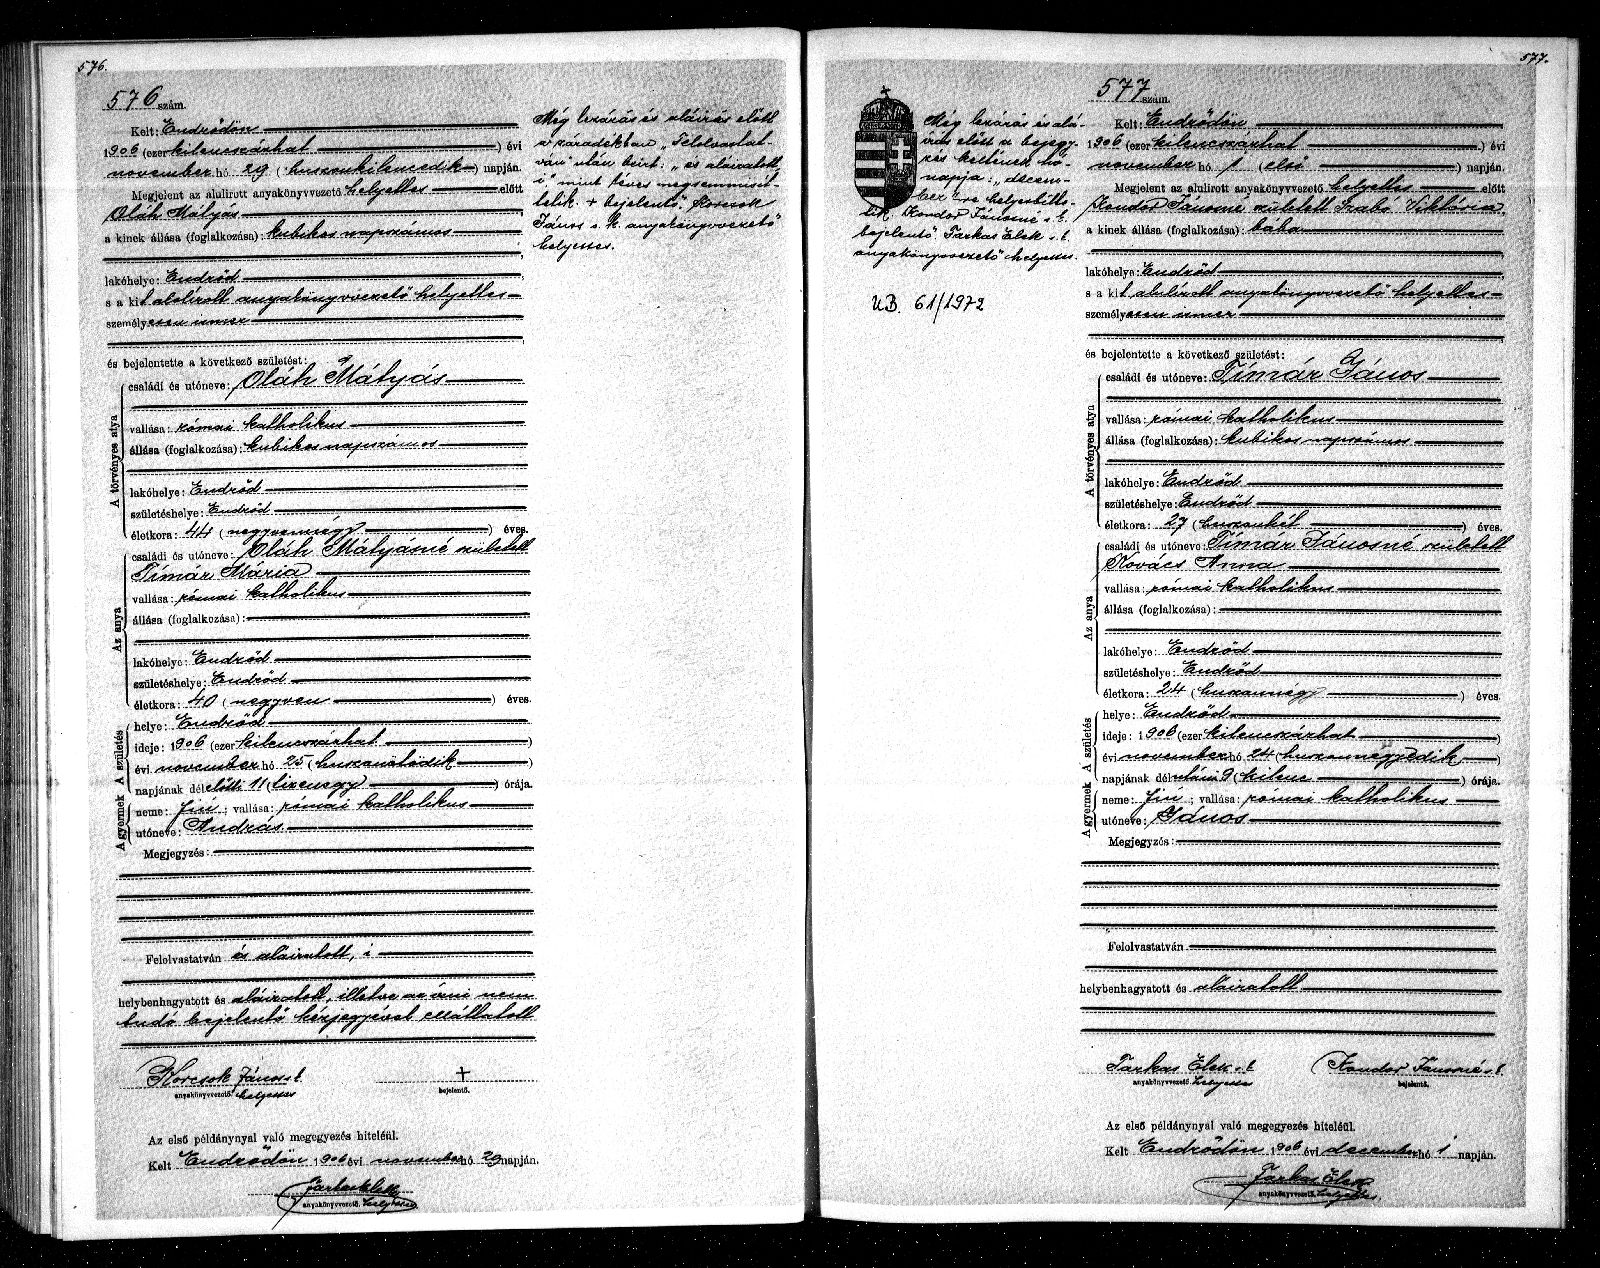 576.
576 szám.
Kelt: Endrődön
1906 (ezer kilencszázhat) évi
november hó 29 (huszonkilencedik) napján.
Megjelent az alulirott anyakönyvvezető helyettes előtt
Oláh Mátyás
a kinek állása (foglalkozása): kubikos napszámos
lakóhelye: Endrőd
s a kit alulírott anyakönyvvezető helyettes
személyesen ismer
és bejelentette a következő születést:
A törvényes atya
családi és utóneve: Oláh Mátyás
vallása: római katholikus
állása (foglalkozása): kubikos napszámos
lakóhelye: Endrőd
születéshelye: Endrőd
életkora: 44 (negyvennégy) éves.
Az anya
családi és utóneve: Oláh Mátyásné született
Tímár Mária
vallása: római katholikus
állása (foglalkozása):
lakóhelye: Endrőd
születéshelye: Endrőd
életkora: 40 (negyven) éves.
A gyermek A születés
helye: Endrőd
ideje: 1906 (ezer kilencszázhat)
évi november hó 25 (huszonötödik)
napjának délelőtti 11 (tizenegy) órája.
neme: fiú; vallása: római katholikus
utóneve: András
Megjegyzés:
Felolvastatván és aláiratott, i
helybenhagyatott és aláiratott, illetve az írni nem
tudó bejelentő kézjegyével elláttatott
Korcsok János s. k. +
anyakönyvvezető helyettes bejelentő.
Az első példánynyal való megegyezés hiteléül.
Kelt Endrődön 1906 évi november hó 29 napján.
Farkas Elek
anyakönyvvezető helyettes
Még lezárás és aláirás előtt
a záradékban „Felolvastat-
ván" után beirt: „és aláiratott,
i" mint téves megsemmisít-
tetik. + bejelentő. Korcsok
János s. k. anyakönyvvezető
helyettes.
577.
577 szám.
Kelt: Endrődön
1906 (ezer kilencszázhat) évi
november hó 1 (első) napján.
Megjelent az alulirott anyakönyvvezető helyettes előtt
Kondor Jánosné született Szabó Viktória
a kinek állása (foglalkozása): bába
lakóhelye: Endrőd
s a kit alulírott anyakönyvvezető helyettes
személyesen ismer
és bejelentette a következő születést:
A törvényes atya
családi és utóneve: Tímár János
vallása: római katholikus
állása (foglalkozása): kubikos napszámos
lakóhelye: Endrőd
születéshelye: Endrőd
életkora: 27 (huszonhét) éves.
Az anya
családi és utóneve: Tímár Jánosné született
Kovács Anna
vallása: római katholikus
állása (foglalkozása):
lakóhelye: Endrőd
születéshelye: Endrőd
életkora: 24 (huszonnégy) éves.
A gyermek A születés
helye: Endrőd
ideje: 1906 (ezer kilencszázhat)
évi november hó 24 (huszonnégyedik)
napjának délutáni 9 (kilenc) órája.
neme: fiú; vallása: római katholikus
utóneve: János
Megjegyzés:
Felolvastatván
helybenhagyatott és aláiratott
Farkas Elek s. k. Kondor Jánosné s. k.
anyakönyvvezető helyettes bejelentő.
Az első példánynyal való megegyezés hiteléül.
Kelt Endrődön 1906 évi december hó 1 napján.
Farkas Elek
anyakönyvvezető helyettes
Még lezárás és alá-
irás előtt a bejegy-
zés keltének hó-
napja: „decem-
ber"re helyesbítte-
tik. Kondor Jánosné s. k.
bejelentő Farkas Elek s. k.
anyakönyvvezető helyettes.
UB. 61/1972